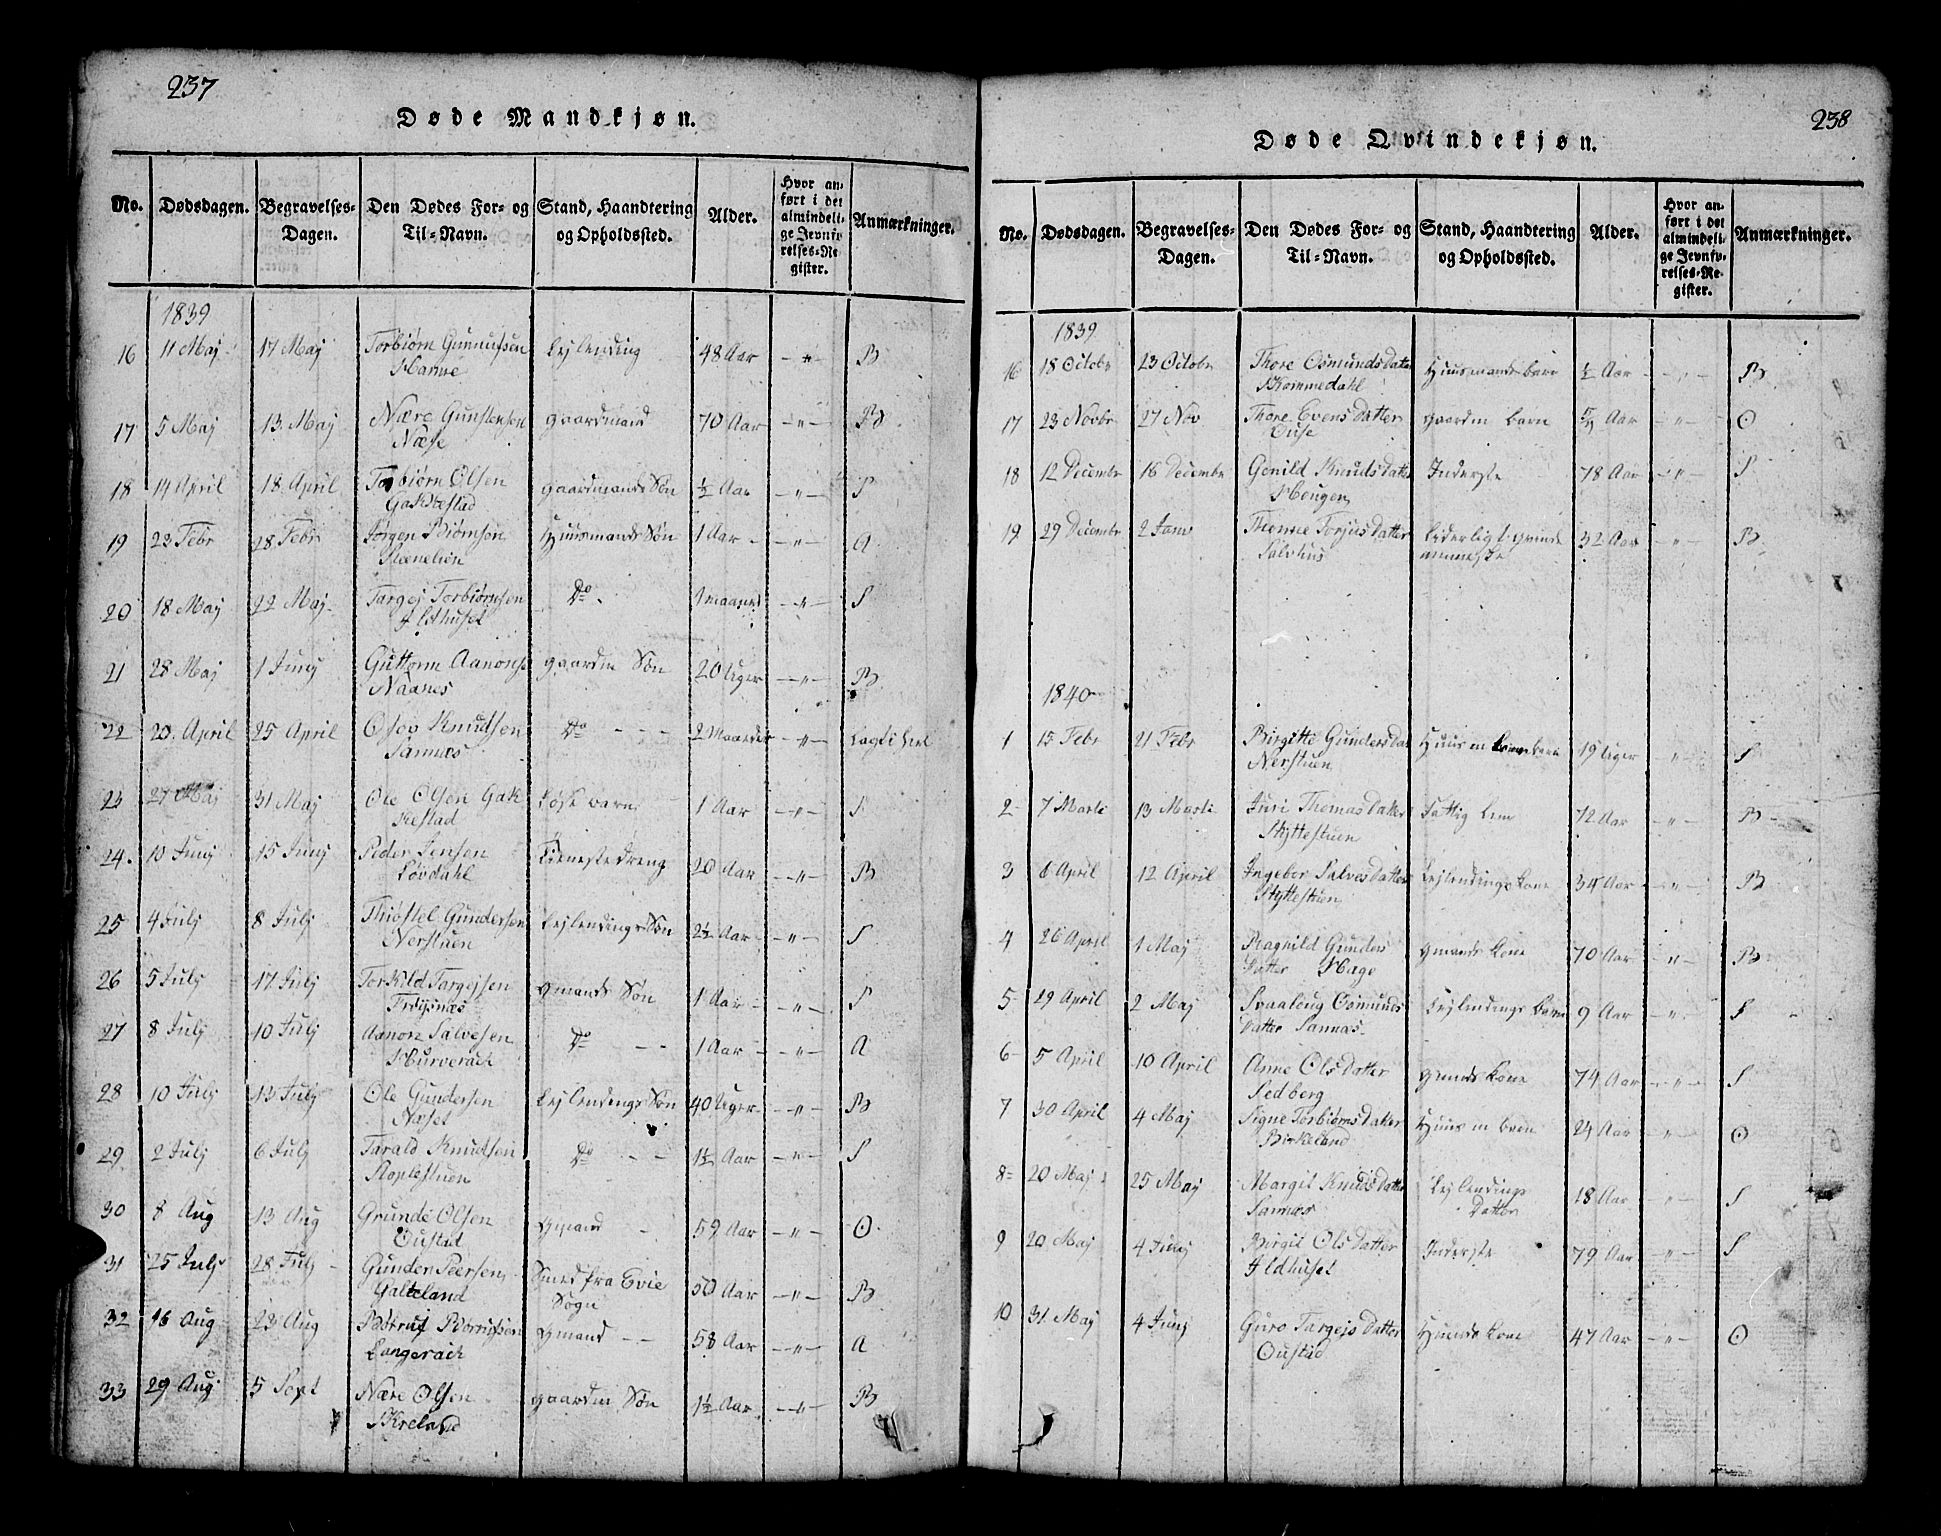 237
Døde Mandkjøn.
No. Dødsdagen. Begravelses-Dagen. Den Dødes For- og Til-Navn. Stand, Haandtering og Opholdssted. Alder. Hvor anført i det almindelige Jevnførelses-Register. Anmærkninger.
1839
16 11 Maj 17 Maj Torbiørn Gunnufsen Lejlending 48 Aar —"— B
17 5 Maj 13 Maj Nære Gunstensen Næse gaardmand 70 Aar —"— B
18 14 April 18 April Torbiørn Olsen Gakkestad gaardmands Søn ½ Aar —"— S
19 23 Febr 28 Febr Jørgen Biørnsen Huusmands Søn 1 Aar —"— A
20 18 Maj 22 Maj Targej Torbiørnsen Ildhuset Do 1 maaned —"— S
21 28 Maj 1 Junj Guttorm Aanons Naanes gaardm Søn 20 Uger —"— B
22 20 April 25 April Osov Knudsen Sannæs Do 2 Maaneder —"—
23 27 Maj 31 Maj Ole Olsen Gakkestad barn 1 Aar —"— S
24 10 Junj 15 Junj Peder Jensen Løvdahl Tienestedreng 20 Aar —"— B
25 4 Julj 8 Julj Thiøstel Gundersen Nerstuen Lejlendings Søn 2½ Aar —"— S
26 5 Julj 17 Julj Torkild Targejsen Frøysnæs gmands Søn 1 Aar —"— S
27 8 Julj 10 Julj Aanon Salvesen Hurverach Do 1 Aar —"— A
28 10 Julj 13 Julj Ole Gundersen Næset Lejlendings Søn 40 Uger —"— B
29 2 Julj 6 Julj Tarald Knudsen Stoplestuen Do 1½ Aar —"— S
30 8 Aug 13 Aug Grunde Olsen Oustad gmand 59 Aar —"— O
31 25 Julj 28 Julj Gunder Peersen Galteland Smed fra Evie Sogn 50 Aar —"— B
32 16 Aug 23 Aug Langerach gmand 58 Aar —"— A
33 29 Aug 5 Sept Nære Olsen Kreland gaardm Søn 1½ Aar —"— B
238
Døde Qvindekjøn.
No. Dødsdagen. Begravelses-Dagen. Den Dødes For- og Til-Navn. Stand, Haandtering og Opholdssted. Alder. Hvor anført i det almindelige Jevnførelses-Register. Anmærkninger.
1839
16 18 Octobr 23 Octobr Thore Osmunds Datter Kommedahl Huusmands barn ½ Aar —"— B
17 23 Novbr 27 Nov Thore Evens Datter Ouse gaardm barn Aar —"— O
18 12 Decembr 16 Decembr Gonild Knuds Datter Hougen Inderste 78 Aar —"— S
19 29 Decembr 2 Janv Thonne Torjus Datter Salvhus Liderligt qvinde menneske 32 Aar —"— B
1840
1 15 Febr 21 Febr Birgitte Gunders Dat Nerstuen Huus m barn 19 Uger —"— S
2 7 Marti 13 Marti Juri Thomas Datter Styttestuen Fattig Lem 72 Aar —"— B
3 6 April 12 April Ingebor Salves Datter Styttestuen Lejlendings Kone 34 Aar —"— B
4 26 April 1 Maj Ragnild Gunders Datter Hage gmands Kone 70 Aar —"— B
5 29 April 2 Maj Svaaloug Osmunds Datter Sannæs Lejlendings barn 9 Aar —"— S
6 5 April 10 April Anne Ols Datter Sedberg gmands Kone 74 Aar —"— S
7 30 April 4 Maj Signe Torbiørns Datter Birkeland Huus m barn 24 Aar —"— O
8 20 Maj 25 Maj Margit Knuds Datter Sannæs Lejlendings Datter 18 Aar —"— S
9 20 Maj 4 Junj Birgit Ols Datter Ildhuset Inderste 79 Aar —"— S
10 31 Maj 4 Junj Guro Targejs Datter Oustad Hmands Kone 47 Aar —"— O